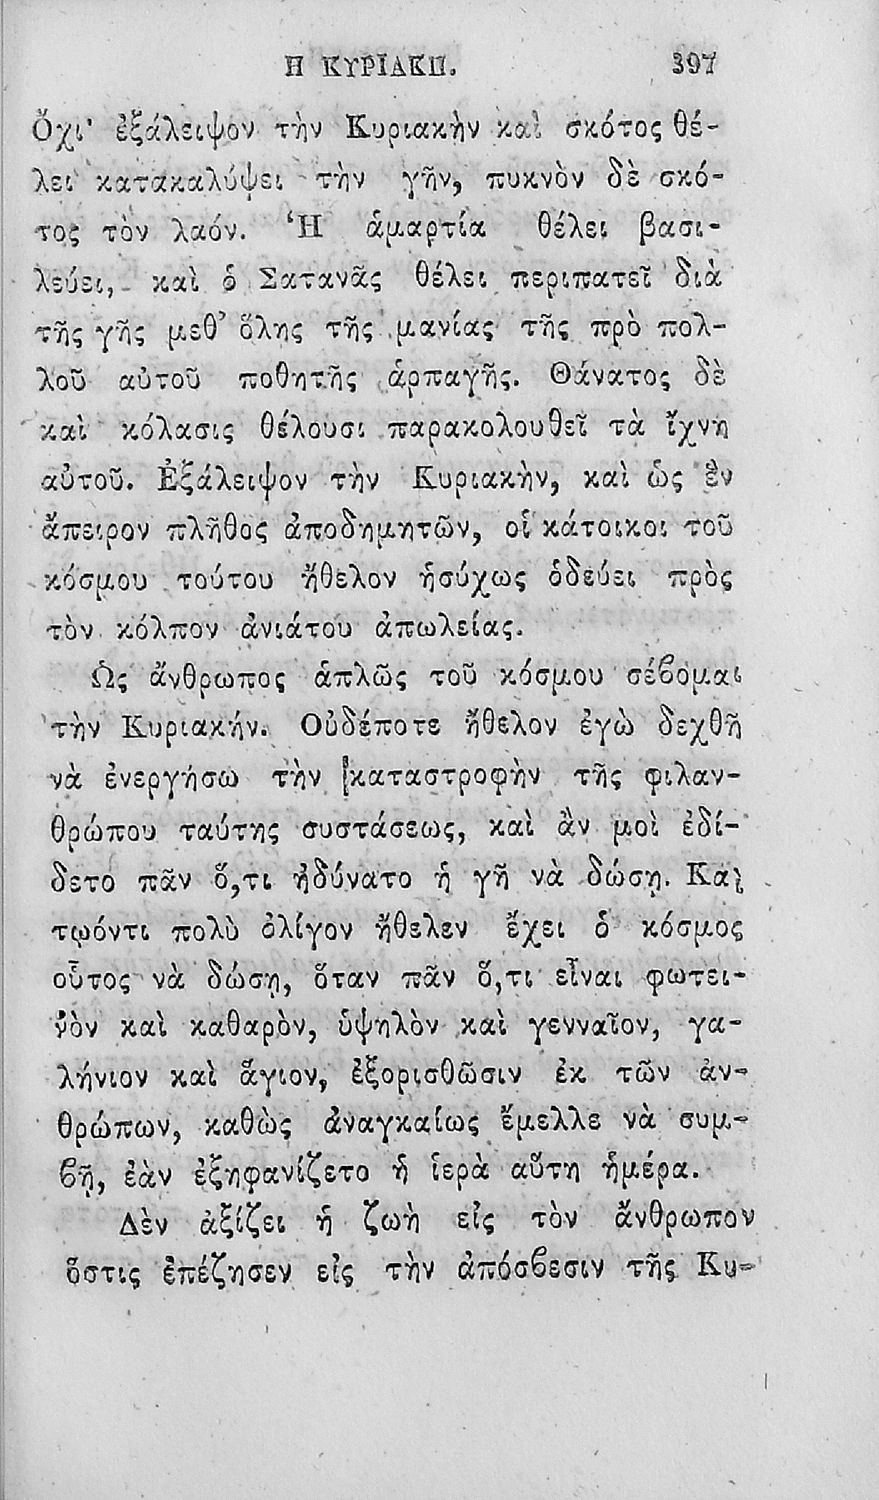 Η ΚΥΡΙΑΚΗ. 397
Ὄχι· ἐξάλειψον τὴν Κυριακὴν καὶ σκότος θέ-
λει κατακαλύψει τὴν γῆν, πυκνὸν δὲ σκό-
τος τὸν λαόν. Ἡ ἁμαρτία θέλει βασι-
λεύει, καὶ ὁ Σατανᾶς θέλει περιπατεῖ διὰ
τῆς γῆς μεθ’ ὅλης τῆς μανίας τῆς πρὸ πολ-
λοῦ αὐτοῦ ποθητῆς ἁρπαγῆς. Θάνατος δὲ
καὶ κόλασις θέλουσι παρακολουθεῖ τὰ ἴχνη
αὐτοῦ. Ἐξάλειψον τὴν Κυριακὴν, καὶ ὡς ἓν
ἄπειρον πλῆθος ἀποδημητῶν, οἱ κάτοικοι τοῦ
κόσμου τούτου ἤθελον ἡσύχως ὁδεύει πρὸς
τὸν κόλπον ἀνιάτου ἀπωλείας.
Ὡς ἄνθρωπος ἁπλῶς τοῦ κόσμου σέβομαι
τὴν Κυριακήν. Οὐδέποτε ἤθελον ἐγὼ δεχθῆ
νὰ ἐνεργήσω τὴν καταστροφὴν τῆς φιλαν-
θρώπου ταύτης συστάσεως, καὶ ἂν μοὶ ἐδί-
δετο πᾶν ὅ,τι ἠδύνατο ἡ γῆ νὰ δώσῃ. Καὶ
τῳόντι πολὺ ὀλίγον ἤθελεν ἔχει ὁ κόσμος
οὗτος νὰ δώσῃ, ὅταν πᾶν ὅ,τι εἶναι φωτει-
νὸν καὶ καθαρὸν, ὑψηλὸν καὶ γενναῖον, γα-
λήνιον καὶ ἅγιον, ἐξορισθῶσιν ἐκ τῶν ἀν-
θρώπων, καθὼς ἀναγκαίως ἔμελλε νὰ συμ-
βῇ, ἐὰν ἐξηφανίζετο ἡ ἱερὰ αὕτη ἡμέρα.
Δὲν ἀξίζει ἡ ζωὴ εἰς τὸν ἄνθρωπον
ὅστις ἐπέζησεν εἰς τὴν ἀπόσβεσιν τῆς Κυ-